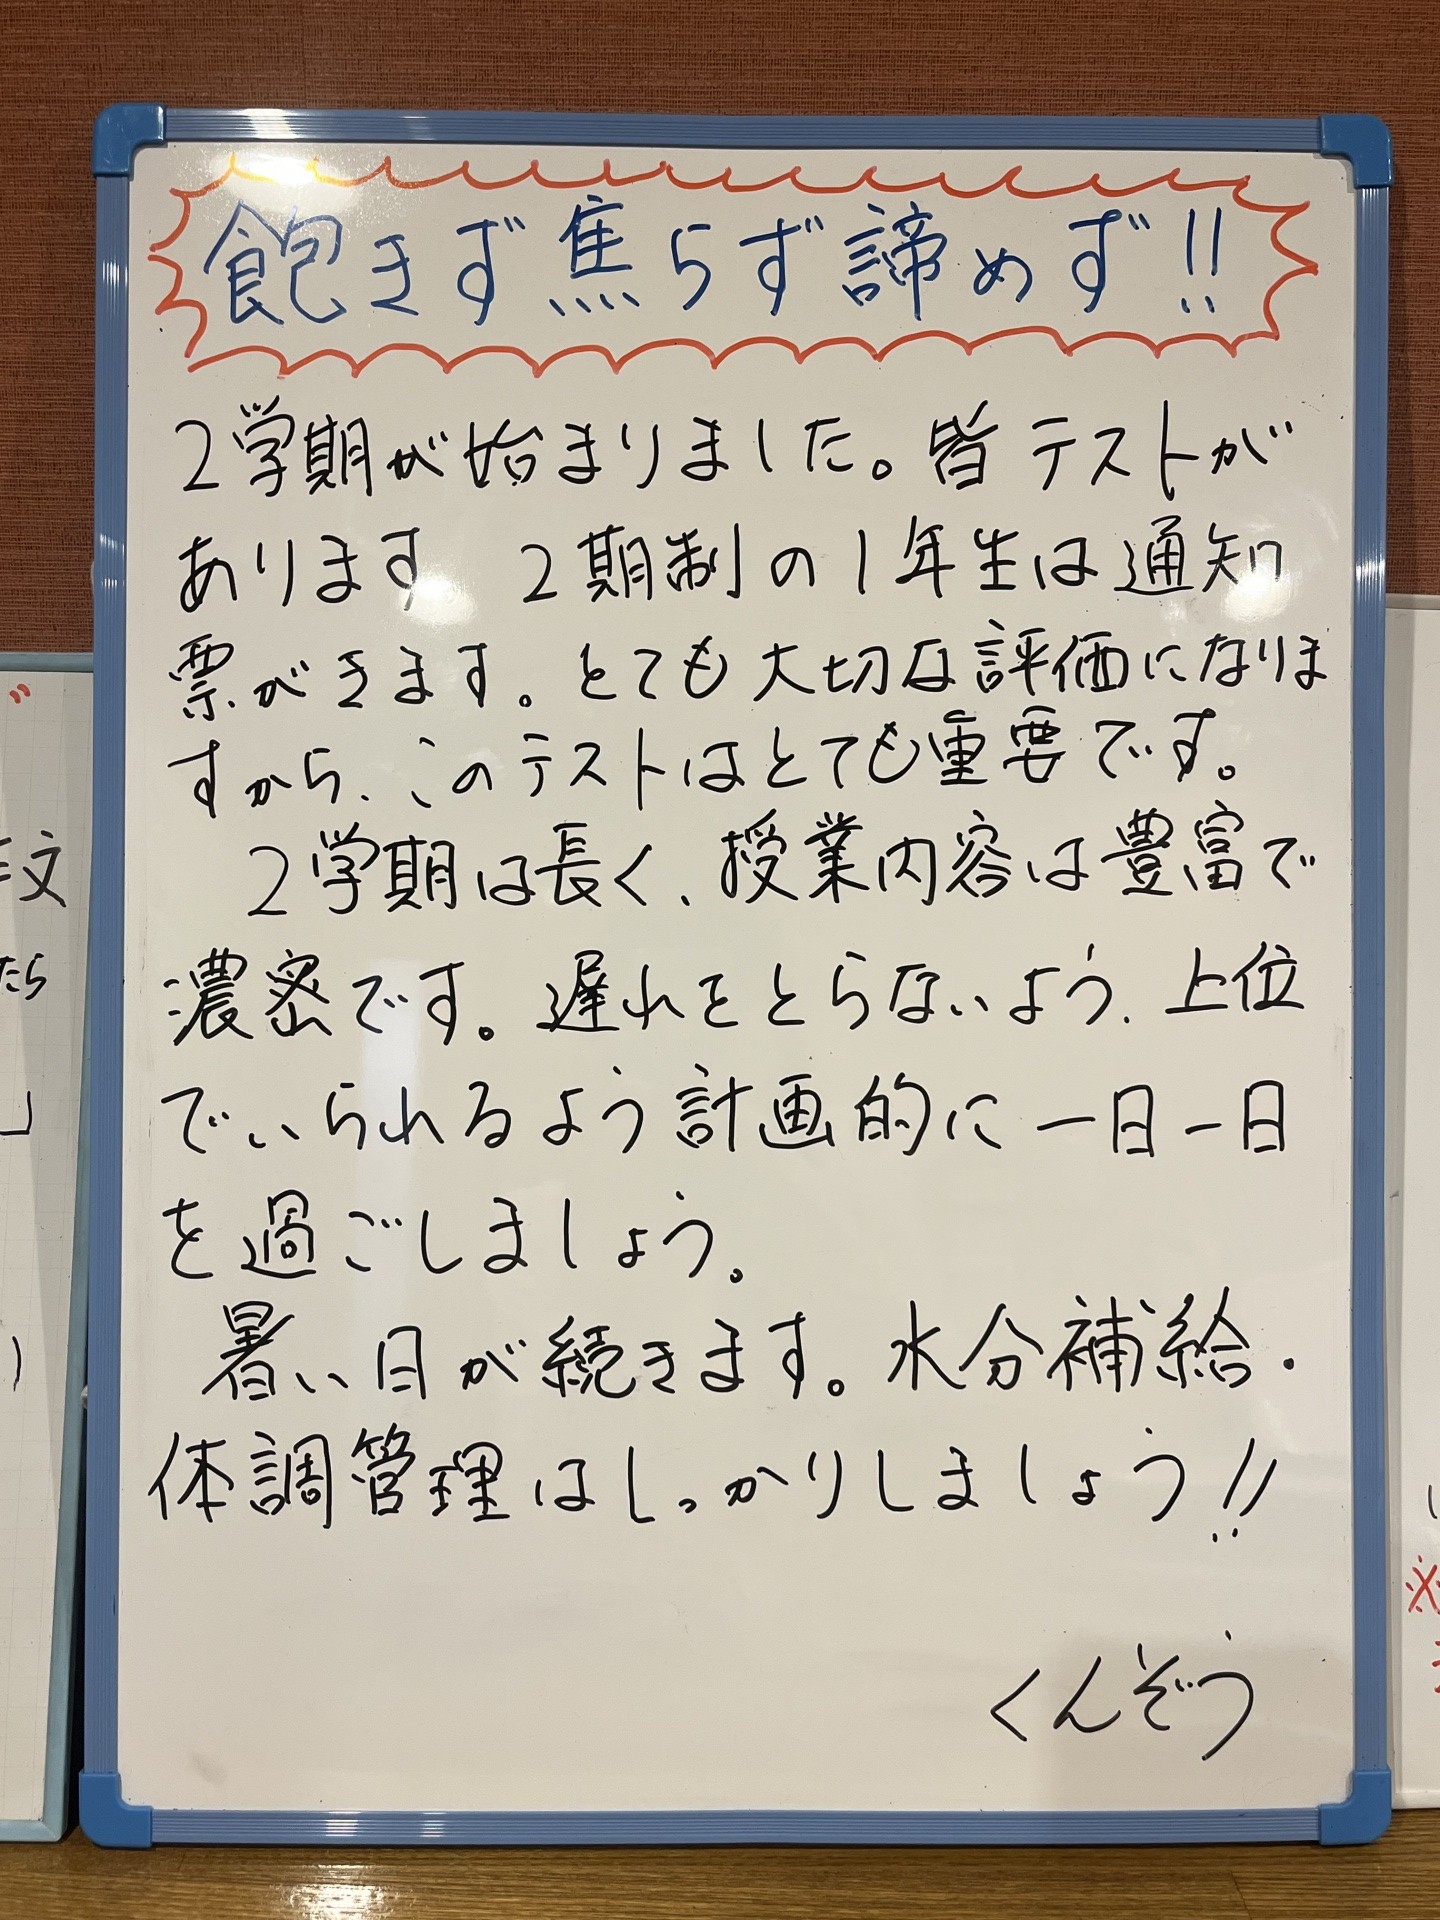 飽きず焦らず諦めず!!
2学期が始まりました。皆テストが
あります 2期制の1年生は通知
票がきます。とても大切な評価になりま
すから、このテストはとても重要です。
2学期は長く、授業内容は豊富で
濃密です。遅れをとらないよう、上位
でいられるよう計画的に一日一日
を過ごしましょう。
暑い日が続きます。水分補給・
体調管理はしっかりしましょう!!
くんぞう
文
たら
」
)
※